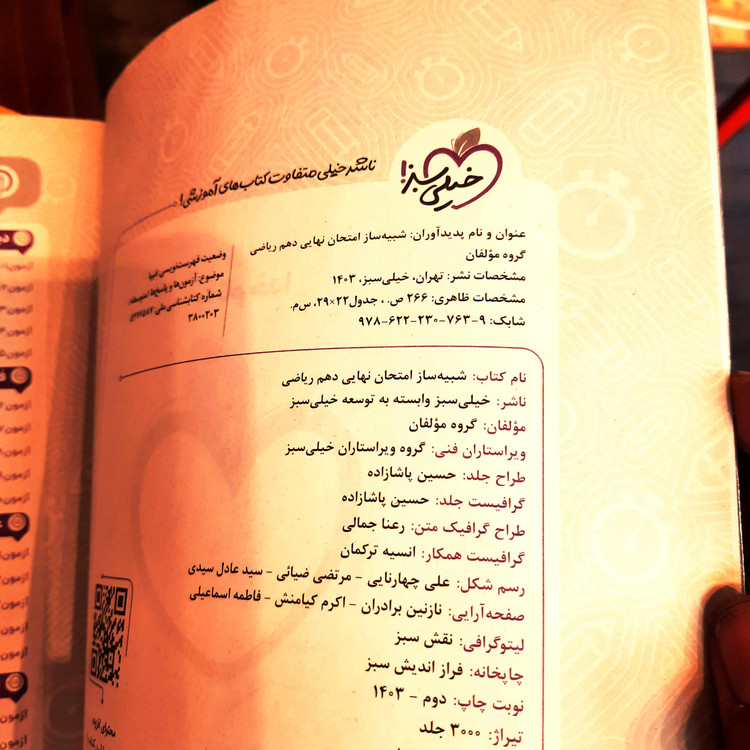 خیلی سبز!
ناشر خیلی متفاوت کتاب‌های آموزشی!
عنوان و نام پدیدآوران: شبیه‌ساز امتحان نهایی دهم ریاضی
گروه مؤلفان
مشخصات نشر: تهران، خیلی‌سبز، ۱۴۰۳
مشخصات ظاهری: ۲۶۶ ص. ، جدول۲۲×۲۹، س‌م.
شابک: ۹-۷۶۳-۲۳۰-۶۲۲-۹۷۸
وضعیت فهرست‌نویسی: فیپا
موضوع: آزمون‌ها و پاسخ‌ها
شماره کتابشناسی ملی:
۳۸۰۰۲۰۳
نام کتاب: شبیه‌ساز امتحان نهایی دهم ریاضی
ناشر: خیلی‌سبز وابسته به توسعه خیلی‌سبز
مؤلفان: گروه مؤلفان
ویراستاران فنی: گروه ویراستاران خیلی‌سبز
طراح جلد: حسین پاشازاده
گرافیست جلد: حسین پاشازاده
طراح گرافیک متن: رعنا جمالی
گرافیست همکار: انسیه ترکمان
رسم شکل: علی چهارنایی - مرتضی ضیائی - سید عادل سیدی
صفحه‌آرایی: نازنین برادران - اکرم کیامنش - فاطمه اسماعیلی
لیتوگرافی: نقش سبز
چاپخانه: فراز اندیش سبز
نوبت چاپ: دوم - ۱۴۰۳
تیراژ: ۳۰۰۰ جلد